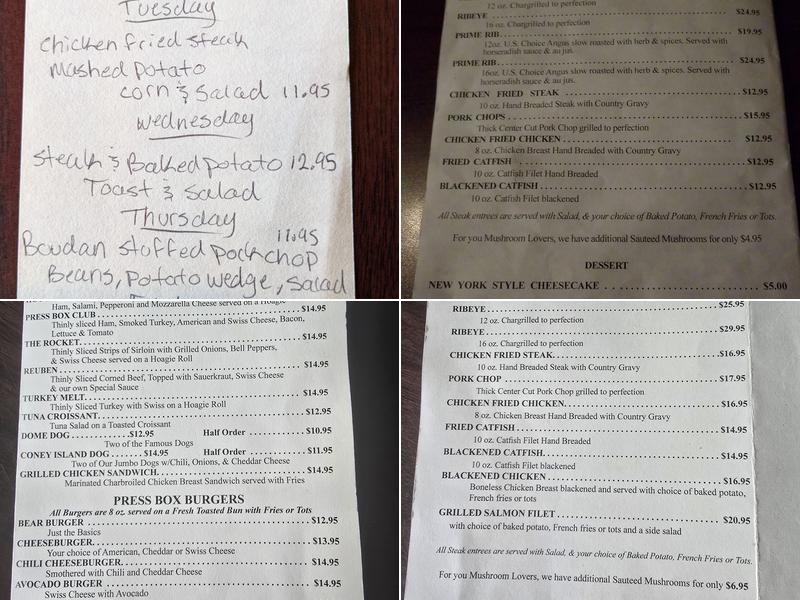 Tuesday
Chicken fried steak
Mashed potato
corn & Salad 11.95
Wednesday
Steak & Baked potato 12.95
Toast & Salad
Thursday
11.95
Boudan stuffed porkchop
Beans, Potato wedge, Salad
12 oz. Chargrilled to perfection
RIBEYE $24.95
16 oz. Chargrilled to perfection
PRIME RIB $19.95
12oz. U.S. Choice Angus slow roasted with herb & spices. Served with
horseradish sauce & au jus.
PRIME RIB $24.95
16oz. U.S. Choice Angus slow roasted with herb & spices. Served with
horseradish sauce & au jus.
CHICKEN FRIED STEAK $12.95
10 oz. Hand Breaded Steak with Country Gravy
PORK CHOPS $15.95
Thick Center Cut Pork Chop grilled to perfection
CHICKEN FRIED CHICKEN $12.95
8 oz. Chicken Breast Hand Breaded with Country Gravy
FRIED CATFISH $12.95
10 oz. Catfish Filet Hand Breaded
BLACKENED CATFISH $12.95
10 oz. Catfish Filet blackened
All Steak entrees are served with Salad, & your choice of Baked Potato, French Fries or Tots.
For you Mushroom Lovers, we have additional Sauteed Mushrooms for only $4.95
DESSERT
NEW YORK STYLE CHEESECAKE $5.00
Ham, Salami, Pepperoni and Mozzarella Cheese served on a Hoagie
PRESS BOX CLUB $14.95
Thinly sliced Ham, Smoked Turkey, American and Swiss Cheese, Bacon,
Lettuce & Tomato
THE ROCKET $14.95
Thinly Sliced Strips of Sirloin with Grilled Onions, Bell Peppers,
& Swiss Cheese served on a Hoagie Roll
REUBEN $14.95
Thinly Sliced Corned Beef, Topped with Sauerkraut, Swiss Cheese
& our own Special Sauce
TURKEY MELT $14.95
Thinly Sliced Turkey with Swiss on a Hoagie Roll
TUNA CROISSANT $12.95
Tuna Salad on a Toasted Croissant
DOME DOG $12.95 Half Order $10.95
Two of the Famous Dogs
CONEY ISLAND DOG $14.95 Half Order $11.95
Two of Our Jumbo Dogs w/Chili, Onions, & Cheddar Cheese
GRILLED CHICKEN SANDWICH $14.95
Marinated Charbroiled Chicken Breast Sandwich served with Fries
PRESS BOX BURGERS
All Burgers are 8 oz. served on a Fresh Toasted Bun with Fries or Tots
BEAR BURGER $12.95
Just the Basics
CHEESEBURGER $13.95
Your choice of American, Cheddar or Swiss Cheese
CHILI CHEESEBURGER $14.95
Smothered with Chili and Cheddar Cheese
AVOCADO BURGER $14.95
Swiss Cheese with Avocado
RIBEYE $25.95
12 oz. Chargrilled to perfection
RIBEYE $29.95
16 oz. Chargrilled to perfection
CHICKEN FRIED STEAK $16.95
10 oz. Hand Breaded Steak with Country Gravy
PORK CHOP $17.95
Thick Center Cut Pork Chop grilled to perfection
CHICKEN FRIED CHICKEN $16.95
8 oz. Chicken Breast Hand Breaded with Country Gravy
FRIED CATFISH $14.95
10 oz. Catfish Filet Hand Breaded
BLACKENED CATFISH $14.95
10 oz. Catfish Filet blackened
BLACKENED CHICKEN $16.95
Boneless Chicken Breast blackened and served with choice of baked potato,
French fries or tots
GRILLED SALMON FILET $20.95
with choice of baked potato, French fries or tots and a side salad
All Steak entrees are served with Salad, & your choice of Baked Potato, French Fries or Tots.
For you Mushroom Lovers, we have additional Sauteed Mushrooms for only $6.95